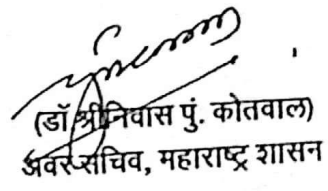 (डॉ श्रीनिवास पुं. कोतवाल)
अवर सचिव, महाराष्ट्र शासन